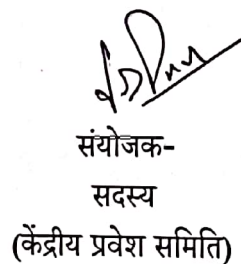 संयोजक-
सदस्य
(केंद्रीय प्रवेश समिति)